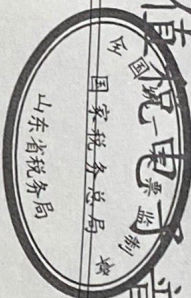 值税电子
全国统一发票监制章
国家税务总局
山东省税务局